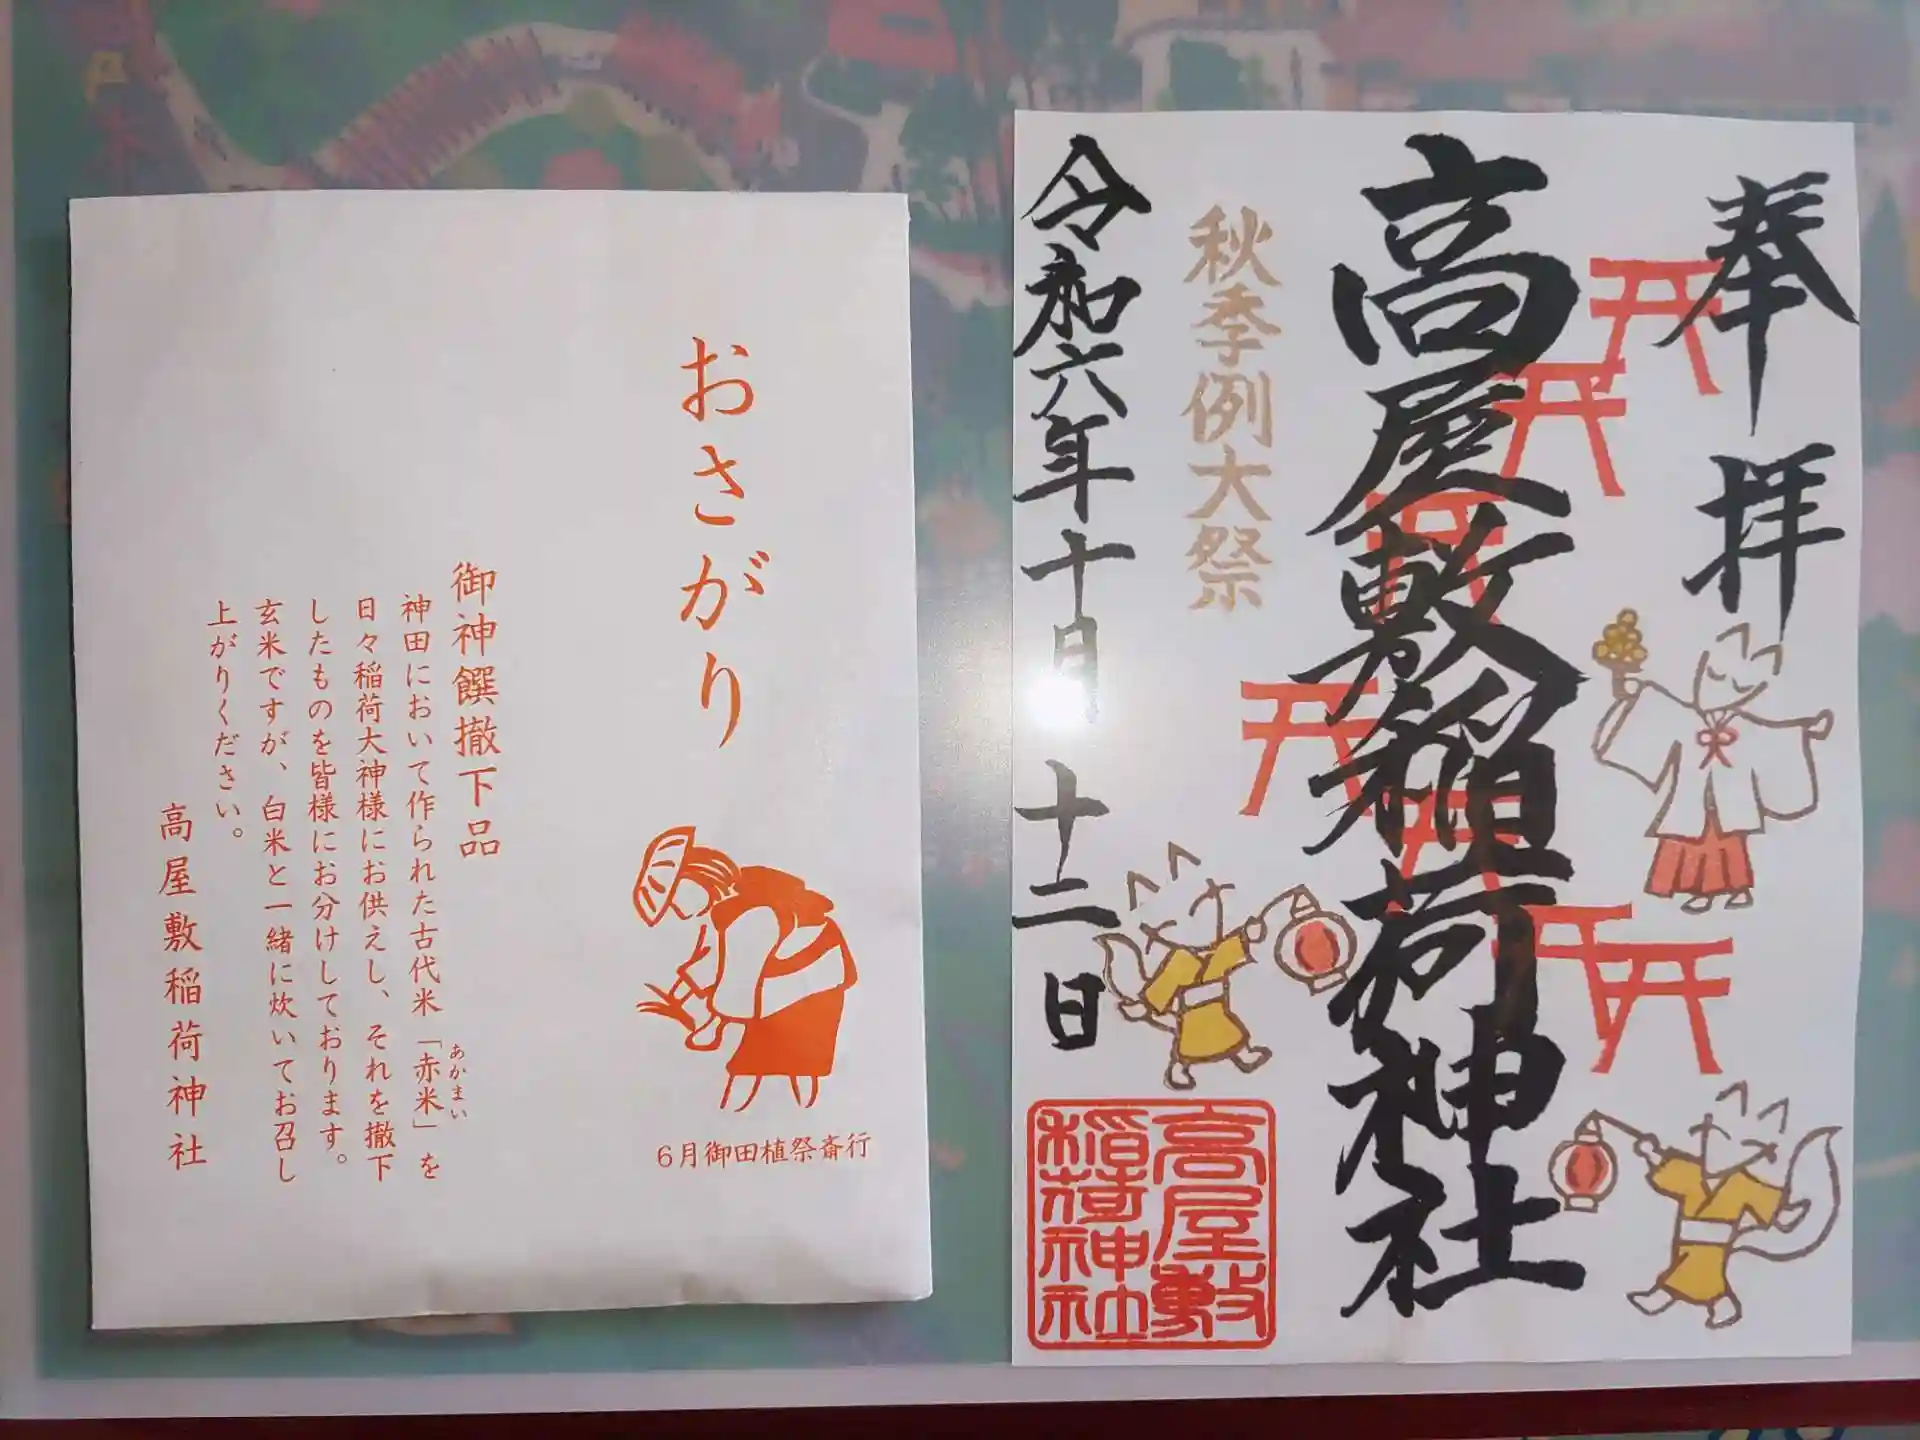 おさがり
御神饌撤下品
神田において作られた古代米「赤米」を
あかまい
日々稲荷大神様にお供えし、それを撤下
したものを皆様にお分けしております。
玄米ですが、白米と一緒に炊いてお召し
上がりください。
高屋敷稲荷神社
6月御田植祭斎行
奉拝
高屋敷稲荷神社
秋季例大祭
令和六年十月十二日
高屋敷
稲荷神社